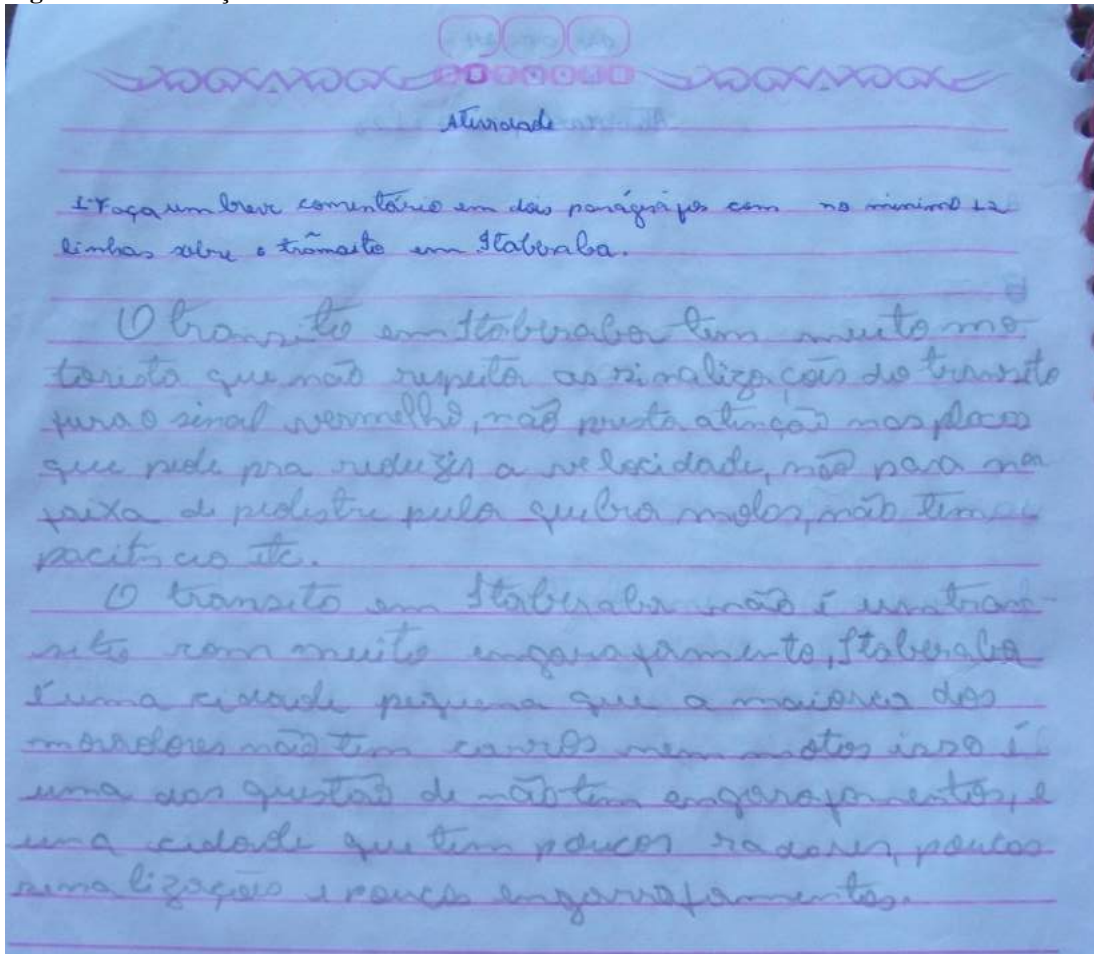 Atividade
1-Faça um breve comentário em dois parágrafos com no minimo 12
linhas sobre o trânsito em Itaberaba.
O transito em Itaberaba tem muito mo
torista que não respeita as sinalizações do transito
fura o sinal vermelho, não presta atenção nas placas
que pede pra reduzir a velocidade, não para na
faixa de pedestre pula quebra molas, não tem
etc.
O transito em Itaberaba não é um tran-
sito com muito engarrafamento, Itaberaba
é uma cidade pequena que a maiorea dos
moradores não tem carros nem motos isso é
uma das questão de não tem engarrafamentos, e
uma cidade que tem poucos radares, poucas
sinalizações e poucos engarrafamentos.